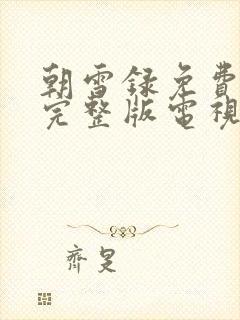 朝雪録免費
完整版電視
齊是